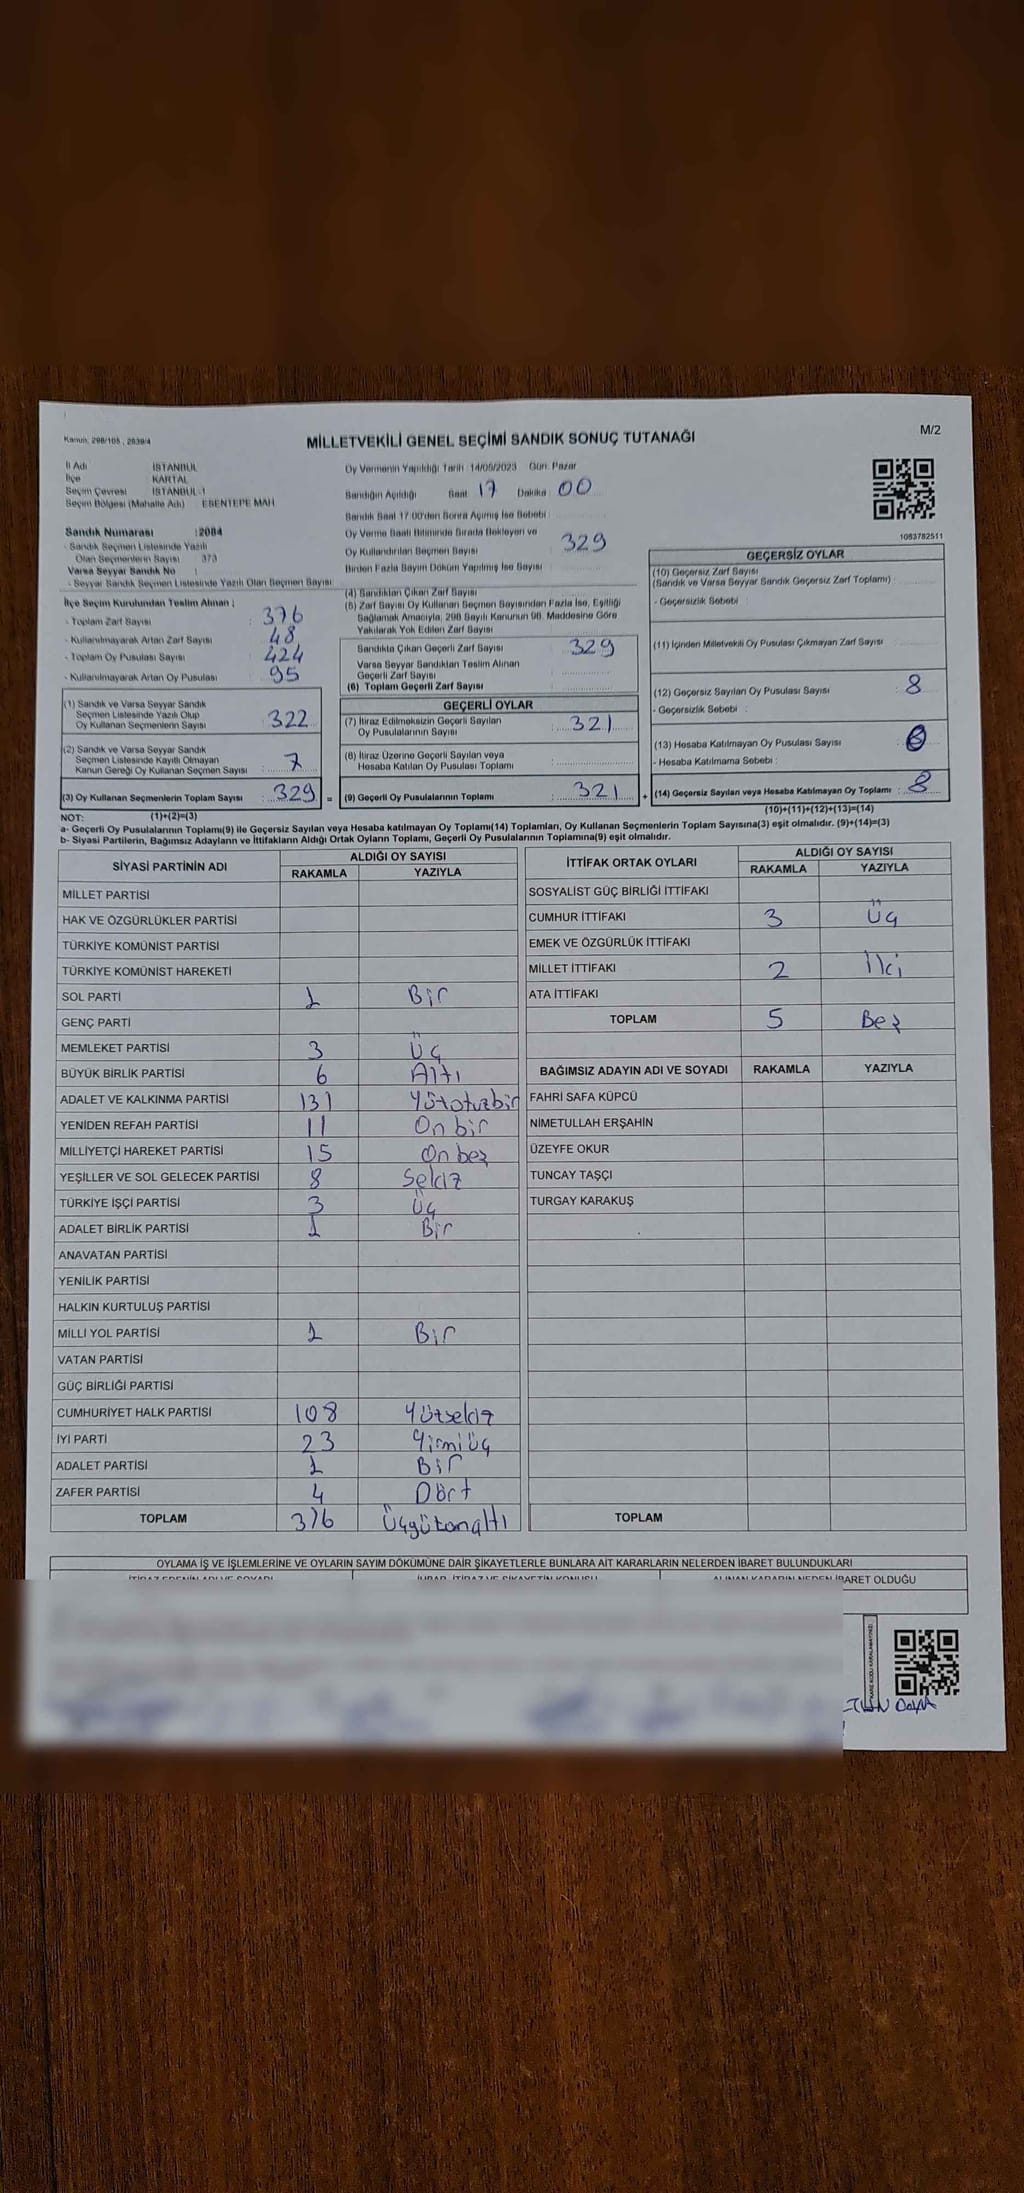 Kanun, 298/105 , 2839/4
MİLLETVEKİLİ GENEL SEÇİMİ SANDIK SONUÇ TUTANAĞI
M/2
İl Adı İSTANBUL
İlçe KARTAL
Seçim Çevresi İSTANBUL-1
Seçim Bölgesi (Mahalle Adı) ESENTEPE MAH
Oy Vermenin Yapıldığı Tarih 14/05/2023 Gün: Pazar
Sandığın Açıldığı Saat 17 Dakika 00
Sandık Saat 17 00'den Sonra Açımış İse Sebebi :
Oy Verme Saati Bitiminde Sırada Bekleyen ve
Oy Kullandırılan Seçmen Sayısı 329
Birden Fazla Sayım Döküm Yapılmış İse Sayısı
1083782511
Sandık Numarası : 2084
- Sandık Seçmen Listesinde Yazılı
Olan Seçmenlerin Sayısı 373
Varsa Seyyar Sandık No :
- Seyyar Sandık Seçmen Listesinde Yazılı Olan Seçmen Sayısı
İlçe Seçim Kurulundan Teslim Alınan ;
- Toplam Zarf Sayısı : 376
- Kullanılmayarak Artan Zarf Sayısı : 48
- Toplam Oy Pusulası Sayısı : 424
- Kullanılmayarak Artan Oy Pusulası : 95
(1) Sandık ve Varsa Seyyar Sandık
Seçmen Listesinde Yazılı Olup
Oy Kullanan Seçmenlerin Sayısı : 322
(2) Sandık ve Varsa Seyyar Sandık
Seçmen Listesinde Kayıtlı Olmayan
Kanun Gereği Oy Kullanan Seçmen Sayısı : 7
(3) Oy Kullanan Seçmenlerin Toplam Sayısı : 329 =
(4) Sandıktan Çıkan Zarf Sayısı
(5) Zarf Sayısı Oy Kullanan Seçmen Sayısından Fazla İse, Eşitliği
Sağlamak Amacıyla, 298 Sayılı Kanunun 98. Maddesine Göre
Yakılarak Yok Edilen Zarf Sayısı
Sandıkta Çıkan Geçerli Zarf Sayısı : 329
Varsa Seyyar Sandıktan Teslim Alınan
Geçerli Zarf Sayısı
(6) Toplam Geçerli Zarf Sayısı
GEÇERLİ OYLAR
(7) İtiraz Edilmeksizin Geçerli Sayılan
Oy Pusulalarının Sayısı : 321
(8) İtiraz Üzerine Geçerli Sayılan veya
Hesaba Katılan Oy Pusulası Toplamı
(9) Geçerli Oy Pusulalarının Toplamı : 321 +
GEÇERSİZ OYLAR
(10) Geçersiz Zarf Sayısı
(Sandık ve Varsa Seyyar Sandık Geçersiz Zarf Toplamı) :
- Geçersizlik Sebebi :
(11) İçinden Milletvekili Oy Pusulası Çıkmayan Zarf Sayısı :
(12) Geçersiz Sayılan Oy Pusulası Sayısı : 8
- Geçersizlik Sebebi :
(13) Hesaba Katılmayan Oy Pusulası Sayısı :
- Hesaba Katılmama Sebebi :
(14) Geçersiz Sayılan veya Hesaba Katılmayan Oy Toplamı : 8
NOT: (1)+(2)=(3) (10)+(11)+(12)+(13)=(14)
a- Geçerli Oy Pusulalarının Toplamı(9) ile Geçersiz Sayılan veya Hesaba katılmayan Oy Toplamı(14) Toplamları, Oy Kullanan Seçmenlerin Toplam Sayısına(3) eşit olmalıdır. (9)+(14)=(3)
b- Siyasi Partilerin, Bağımsız Adayların ve İttifakların Aldığı Ortak Oyların Toplamı, Geçerli Oy Pusulalarının Toplamına(9) eşit olmalıdır.
SİYASİ PARTİNİN ADI ALDIĞI OY SAYISI
RAKAMLA YAZIYLA
MİLLET PARTİSİ
HAK VE ÖZGÜRLÜKLER PARTİSİ
TÜRKİYE KOMÜNİST PARTİSİ
TÜRKİYE KOMÜNİST HAREKETİ
SOL PARTİ 1 Bir
GENÇ PARTİ
MEMLEKET PARTİSİ 3 Üç
BÜYÜK BİRLİK PARTİSİ 6 Altı
ADALET VE KALKINMA PARTİSİ 131 Yüzotuzbir
YENİDEN REFAH PARTİSİ 11 On bir
MİLLİYETÇİ HAREKET PARTİSİ 15 On beş
YEŞİLLER VE SOL GELECEK PARTİSİ 8 Sekiz
TÜRKİYE İŞÇİ PARTİSİ 3 Üç
ADALET BİRLİK PARTİSİ 1 Bir
ANAVATAN PARTİSİ
YENİLİK PARTİSİ
HALKIN KURTULUŞ PARTİSİ
MİLLİ YOL PARTİSİ 1 Bir
VATAN PARTİSİ
GÜÇ BİRLİĞİ PARTİSİ
CUMHURİYET HALK PARTİSİ 108 Yüzsekiz
İYİ PARTİ 23 Yirmi üç
ADALET PARTİSİ 1 Bir
ZAFER PARTİSİ 4 Dört
TOPLAM 316 Üçyüzonaltı
İTTİFAK ORTAK OYLARI ALDIĞI OY SAYISI
RAKAMLA YAZIYLA
SOSYALİST GÜÇ BİRLİĞİ İTTİFAKI
CUMHUR İTTİFAKI 3 Üç
EMEK VE ÖZGÜRLÜK İTTİFAKI
MİLLET İTTİFAKI 2 İki
ATA İTTİFAKI
TOPLAM 5 Beş
BAĞIMSIZ ADAYIN ADI VE SOYADI RAKAMLA YAZIYLA
FAHRİ SAFA KÜPCÜ
NİMETULLAH ERŞAHİN
ÜZEYFE OKUR
TUNCAY TAŞÇI
TURGAY KARAKUŞ
TOPLAM
OYLAMA İŞ VE İŞLEMLERİNE VE OYLARIN SAYIM DÖKÜMÜNE DAİR ŞİKAYETLERLE BUNLARA AİT KARARLARIN NELERDEN İBARET BULUNDUKLARI
İTİRAZ EDENİN ADI VE SOYADI İHBAR, İTİRAZ VE ŞİKAYETİN KONUSU ALINAN KARARIN NEDEN İBARET OLDUĞU